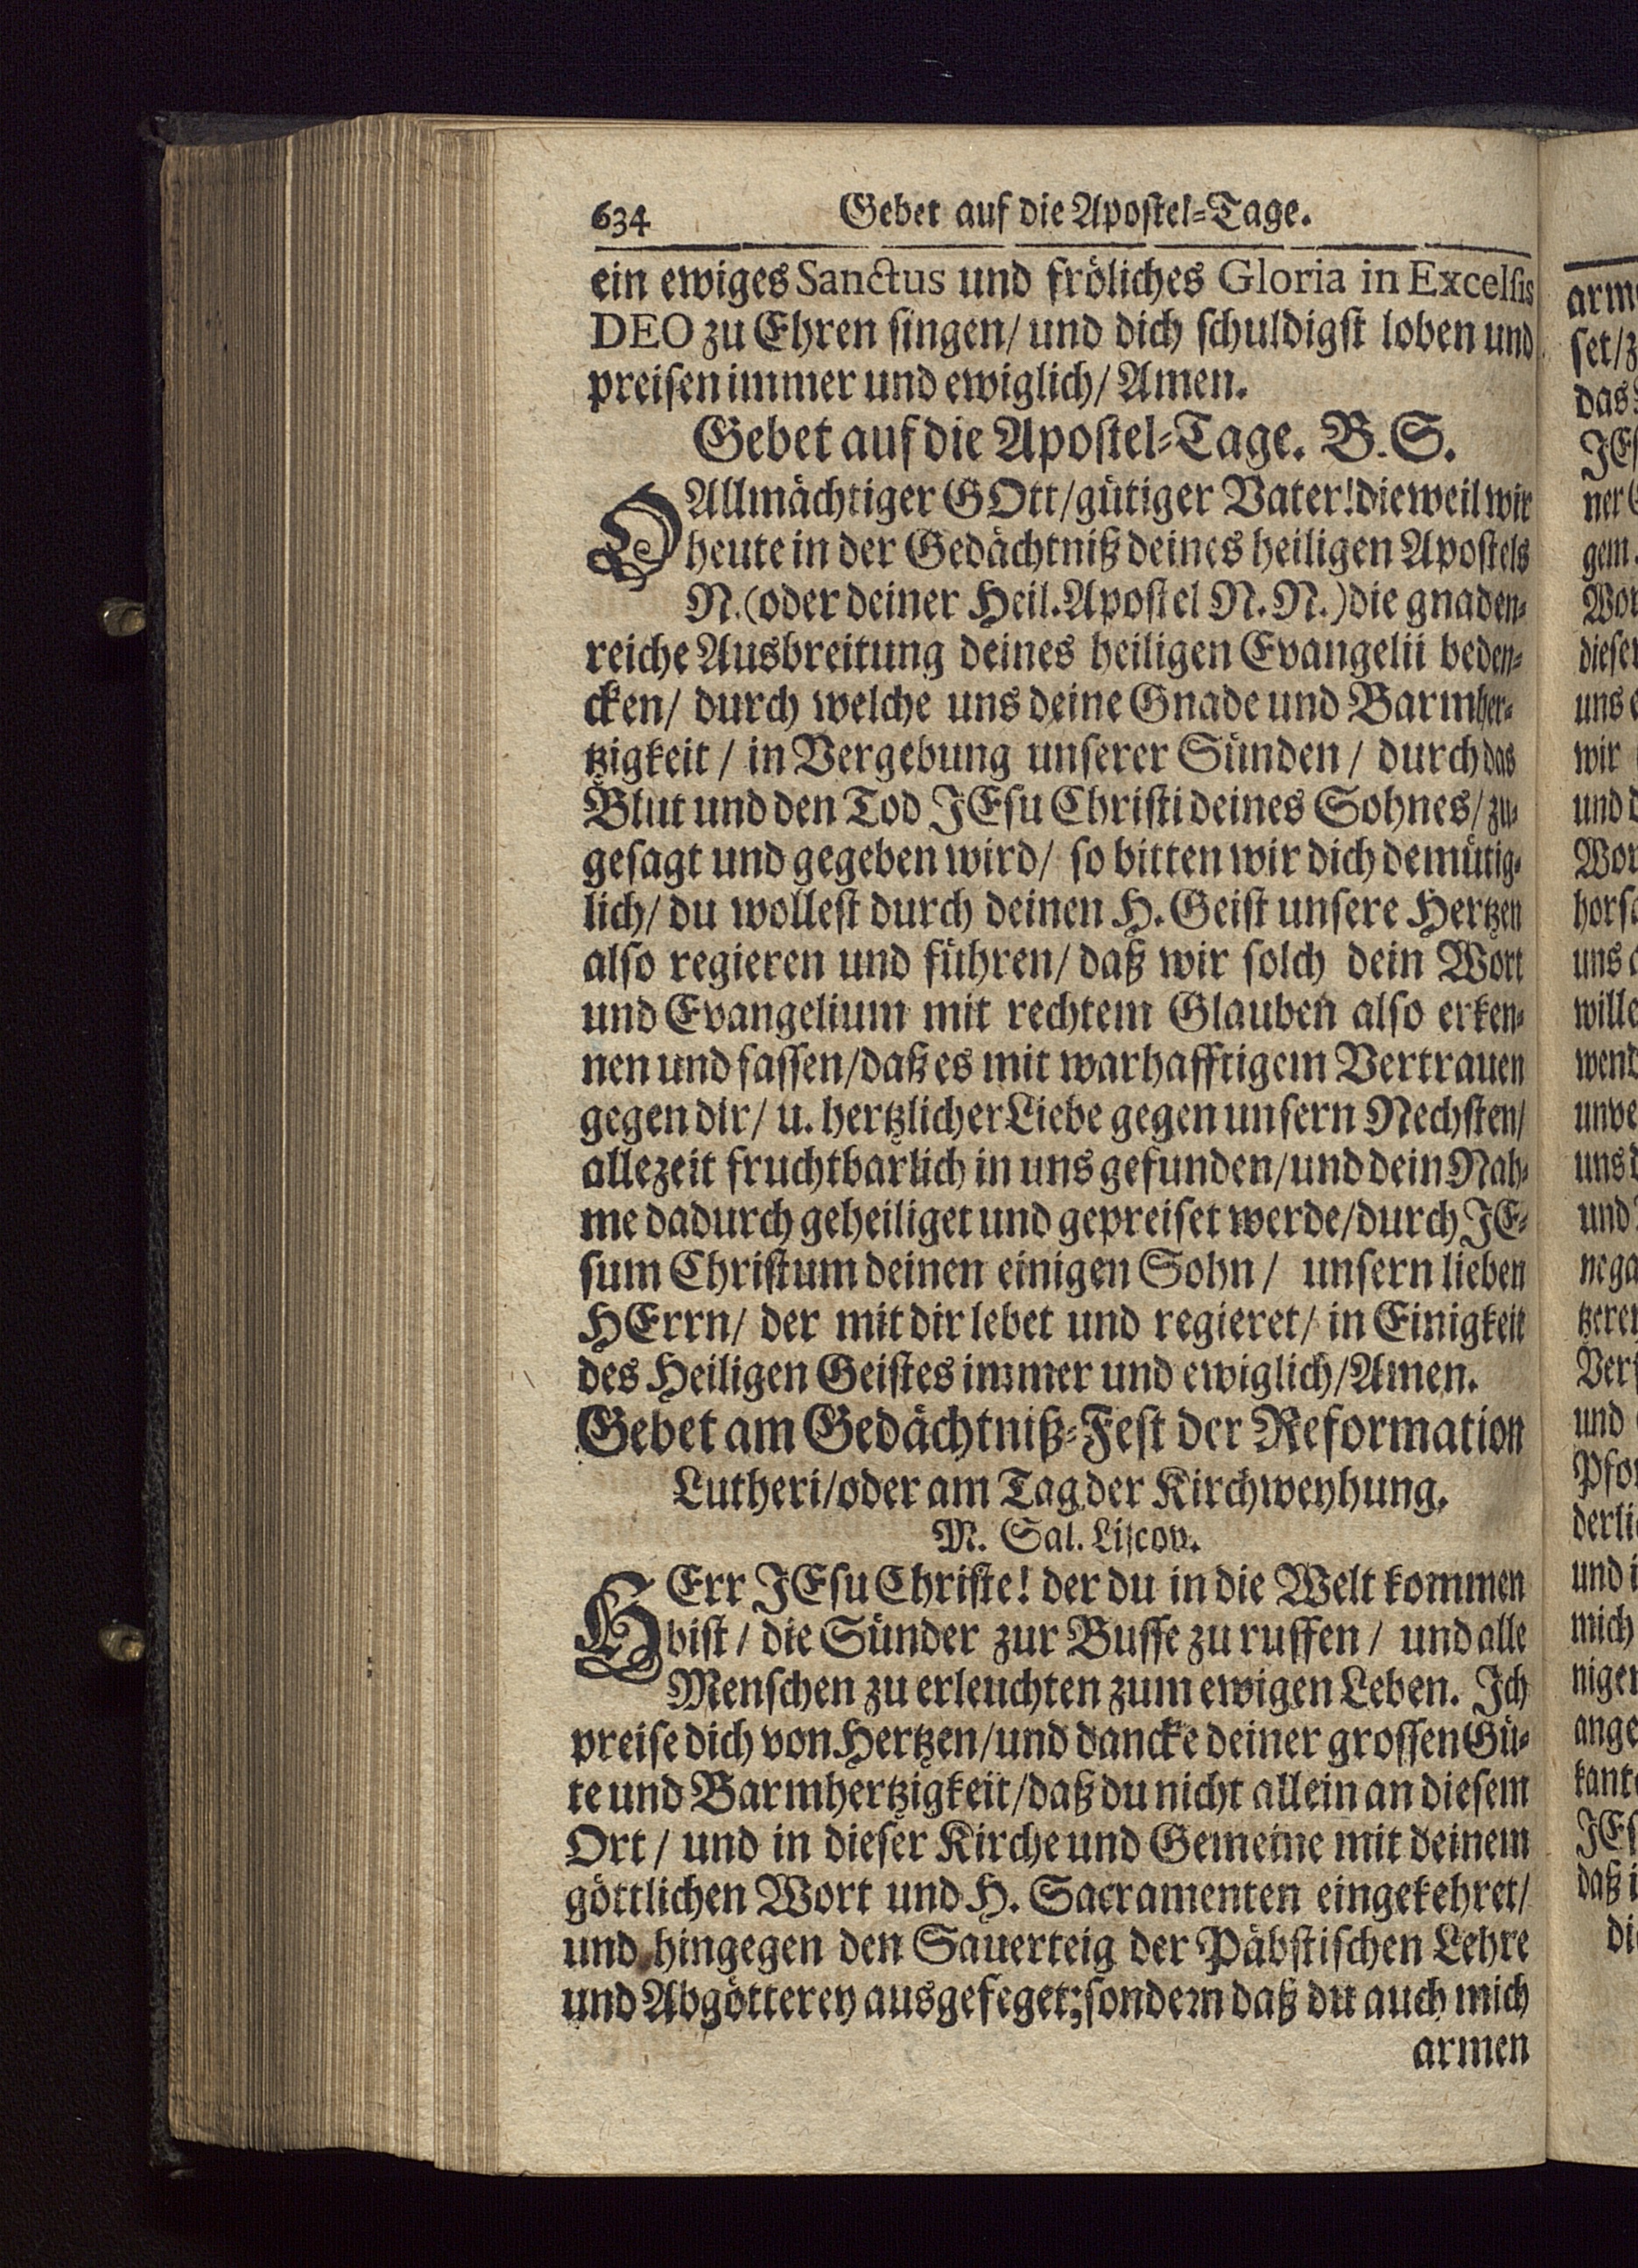 634 Gebet auf die Apostel-Tage.
ein ewiges Sanctus und fröliches Gloria in Excelsis
DEO zu Ehren singen/ und dich schuldigst loben und
preisen immer und ewiglich/ Amen.
Gebet auf die Apostel-Tage. B. S.
O Allmächtiger GOtt/ gütiger Vater! dieweil wir
heute in der Gedächtniß deines heiligen Apostels
N. (oder deiner Heil. Apostel N. N.) die gnaden-
reiche Ausbreitung deines heiligen Evangelii beden-
cken/ durch welche uns deine Gnade und Barmher-
tzigkeit / in Vergebung unserer Sünden / durch das
Blut und den Tod JEsu Christi deines Sohnes/ zu-
gesagt und gegeben wird/ so bitten wir dich demütig-
lich/ du wollest durch deinen H. Geist unsere Hertzen
also regieren und führen/ daß wir solch dein Wort
und Evangelium mit rechtem Glauben also erken-
nen und fassen/ daß es mit warhafftigem Vertrauen
gegen dir/ u. hertzlicher Liebe gegen unsern Nechsten/
allezeit fruchtbarlich in uns gefunden/ und dein Nah-
me dadurch geheiliget und gepreiset werde/ durch JE-
sum Christum deinen einigen Sohn / unsern lieben
HErrn/ der mit dir lebet und regieret/ in Einigkeit
des Heiligen Geistes immer und ewiglich/ Amen.
Gebet am Gedächtniß-Fest der Reformation
Lutheri/ oder am Tag der Kirchweyhung.
M. Sal. Liscov.
HErr JEsu Christe! der du in die Welt kommen
bist / die Sünder zur Busse zu ruffen / und alle
Menschen zu erleuchten zum ewigen Leben. Ich
preise dich von Hertzen/ und dancke deiner grossen Gü-
te und Barmhertzigkeit/ daß du nicht allein an diesem
Ort / und in dieser Kirche und Gemeine mit deinem
göttlichen Wort und H. Sacramenten eingekehret/
und hingegen den Sauerteig der Päbstischen Lehre
und Abgötterey ausgefeget; sondern daß du auch mich
armen